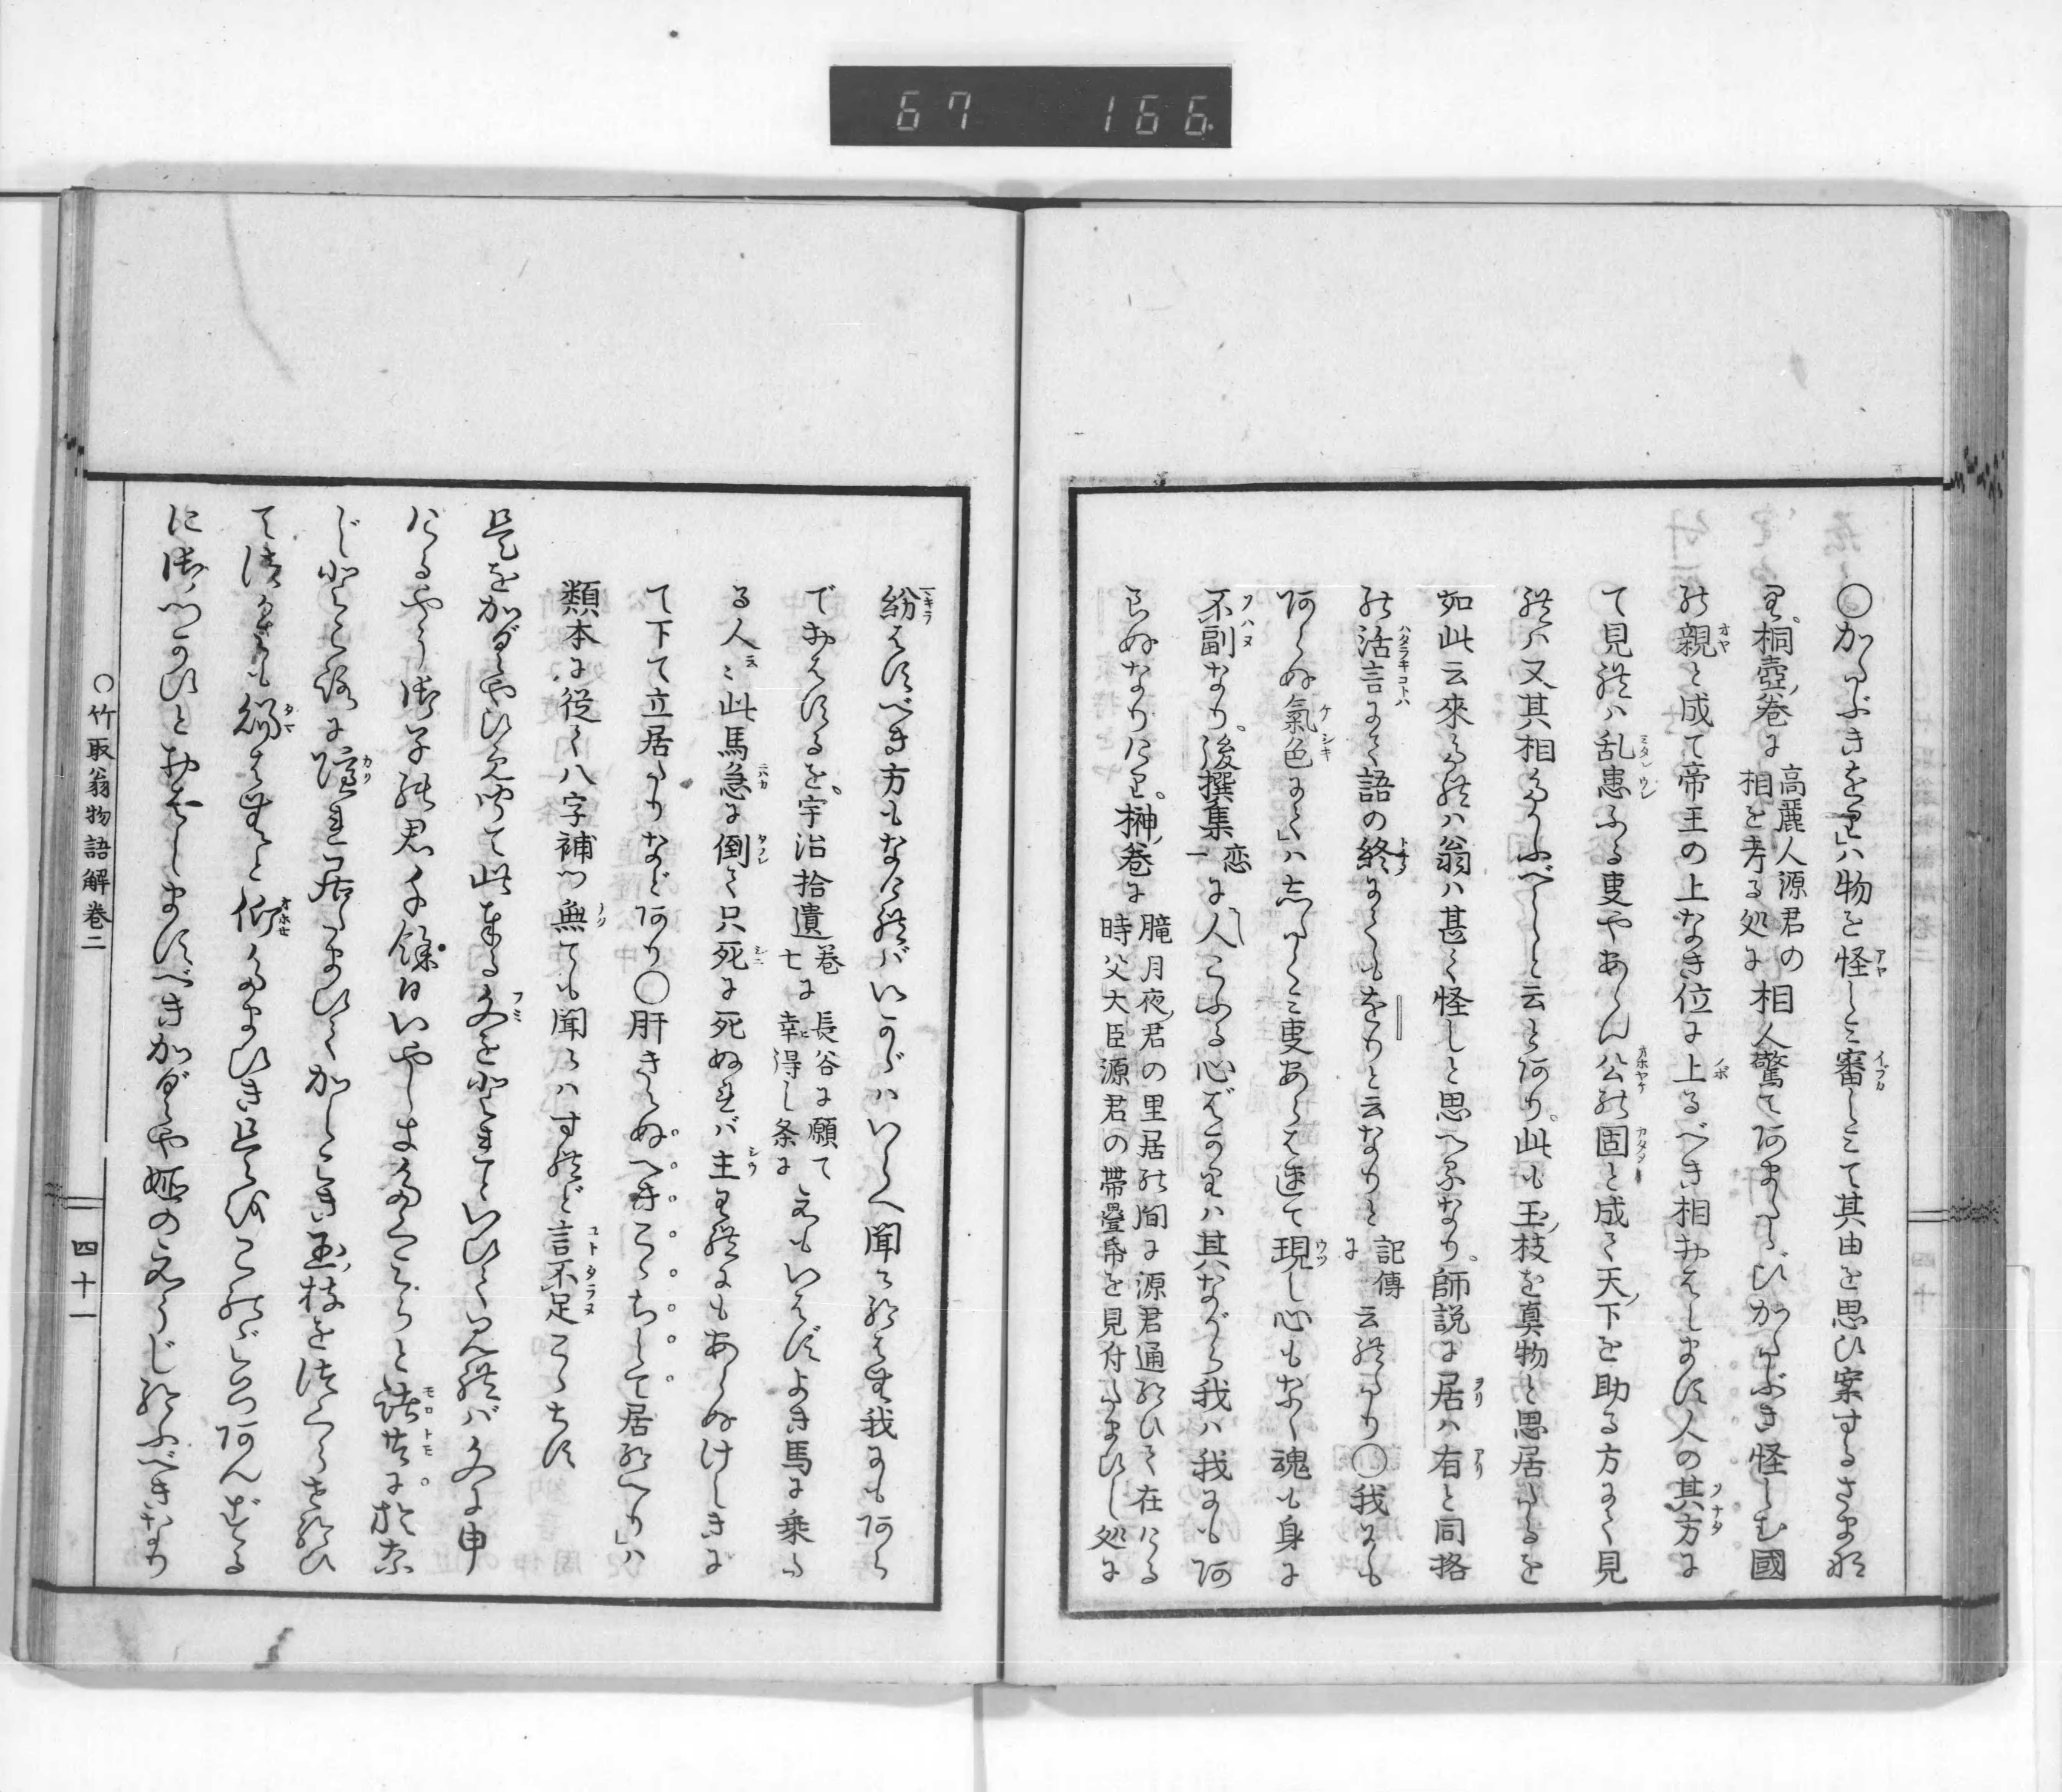 67 166
○かたぶきをり」ハ物を怪しミ審しミて其由を思ひ案するさまな
り。桐壺ノ巻に高麗人源君の相を考る処に相人驚てあまたゝびかたぶき怪しむ國
の親と成て帝王の上なき位に上るべき相おはします人の其方に
て見れハ乱患ふる事やあらん公の固と成て天ノ下を助る方にて見
れハ又其相たがふべしと云とあり。此も玉ノ枝を真物と思居たるを
如此云來るれハ翁ハ甚く怪しと思へるなり。師説に居ハ有と同格
の活言にて語の終にてもをりと云なりと記傳に云れたり○我にも
あらぬ氣色にて」ハ志たゝミ事あらはれて現し心もなく魂も身に
不副なり。後撰集恋一に人こふる心ばかりハ其ながら我ハ我にもあ
らぬなりけり。榊ノ巻に朧月夜ノ君の里居の間に源君通ひて在ける時父大臣源君の帯疊帋を見付たまひし処に
紛はすべき方もなければいかゞハいらへ聞え給はむ我にもあら
でおはするを。宇治拾遺巻七に長谷に願て幸ヒ得し条にえもいはずよき馬に乗た
る人云ミ此馬急に倒て只死に死ぬれバ主われにもあらぬけしきに
て下て立居たりなどあり○肝きえぬべきこゝちして居給へり」ハ
類本に従て八字補つ無ても聞えハすれど言不足こゝちす
是をかぐや姫聞て此奉る文を
にるやう御子の君千餘日いやしきたくみらと諸共に於奈
じところに隠れ居たまひてかしこき玉ノ枝を作らせ給ひ
て官も賜はむと仰たまひき是をこのごろあんずる
に御つかひとおはしますべきかぐや姫の要じ給ふべきなり
○竹取翁物語解巻二
四十一